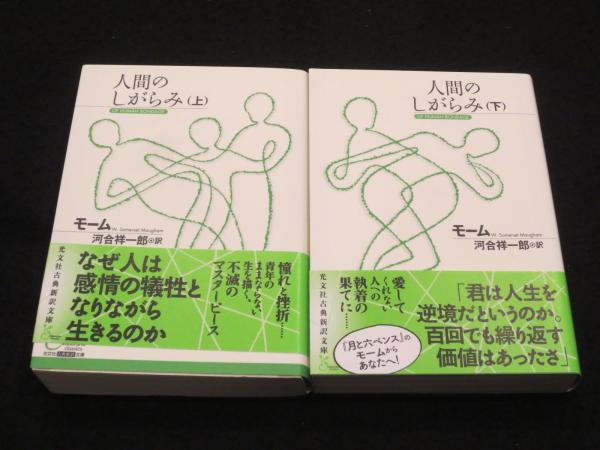 人間の
しがらみ(上)
OF HUMAN BONDAGE
モーム
W. Somerset Maugham
河合祥一郎◎訳
光文社古典新訳文庫
憧れと挫折……
青年の
ままならない
生を描く、
不滅の
マスターピース
なぜ人は
感情の犠牲と
なりながら
生きるのか
classics
光文社古典新訳文庫
人間の
しがらみ(下)
OF HUMAN BONDAGE
モーム
W. Somerset Maugham
河合祥一郎◎訳
光文社古典新訳文庫
愛して
くれない
人への
執着の
果てに……
「君は人生を
逆境だというのか。
百回でも繰り返す
価値はあったさ」
『月と六ペンス』の
モームから
あなたへ!